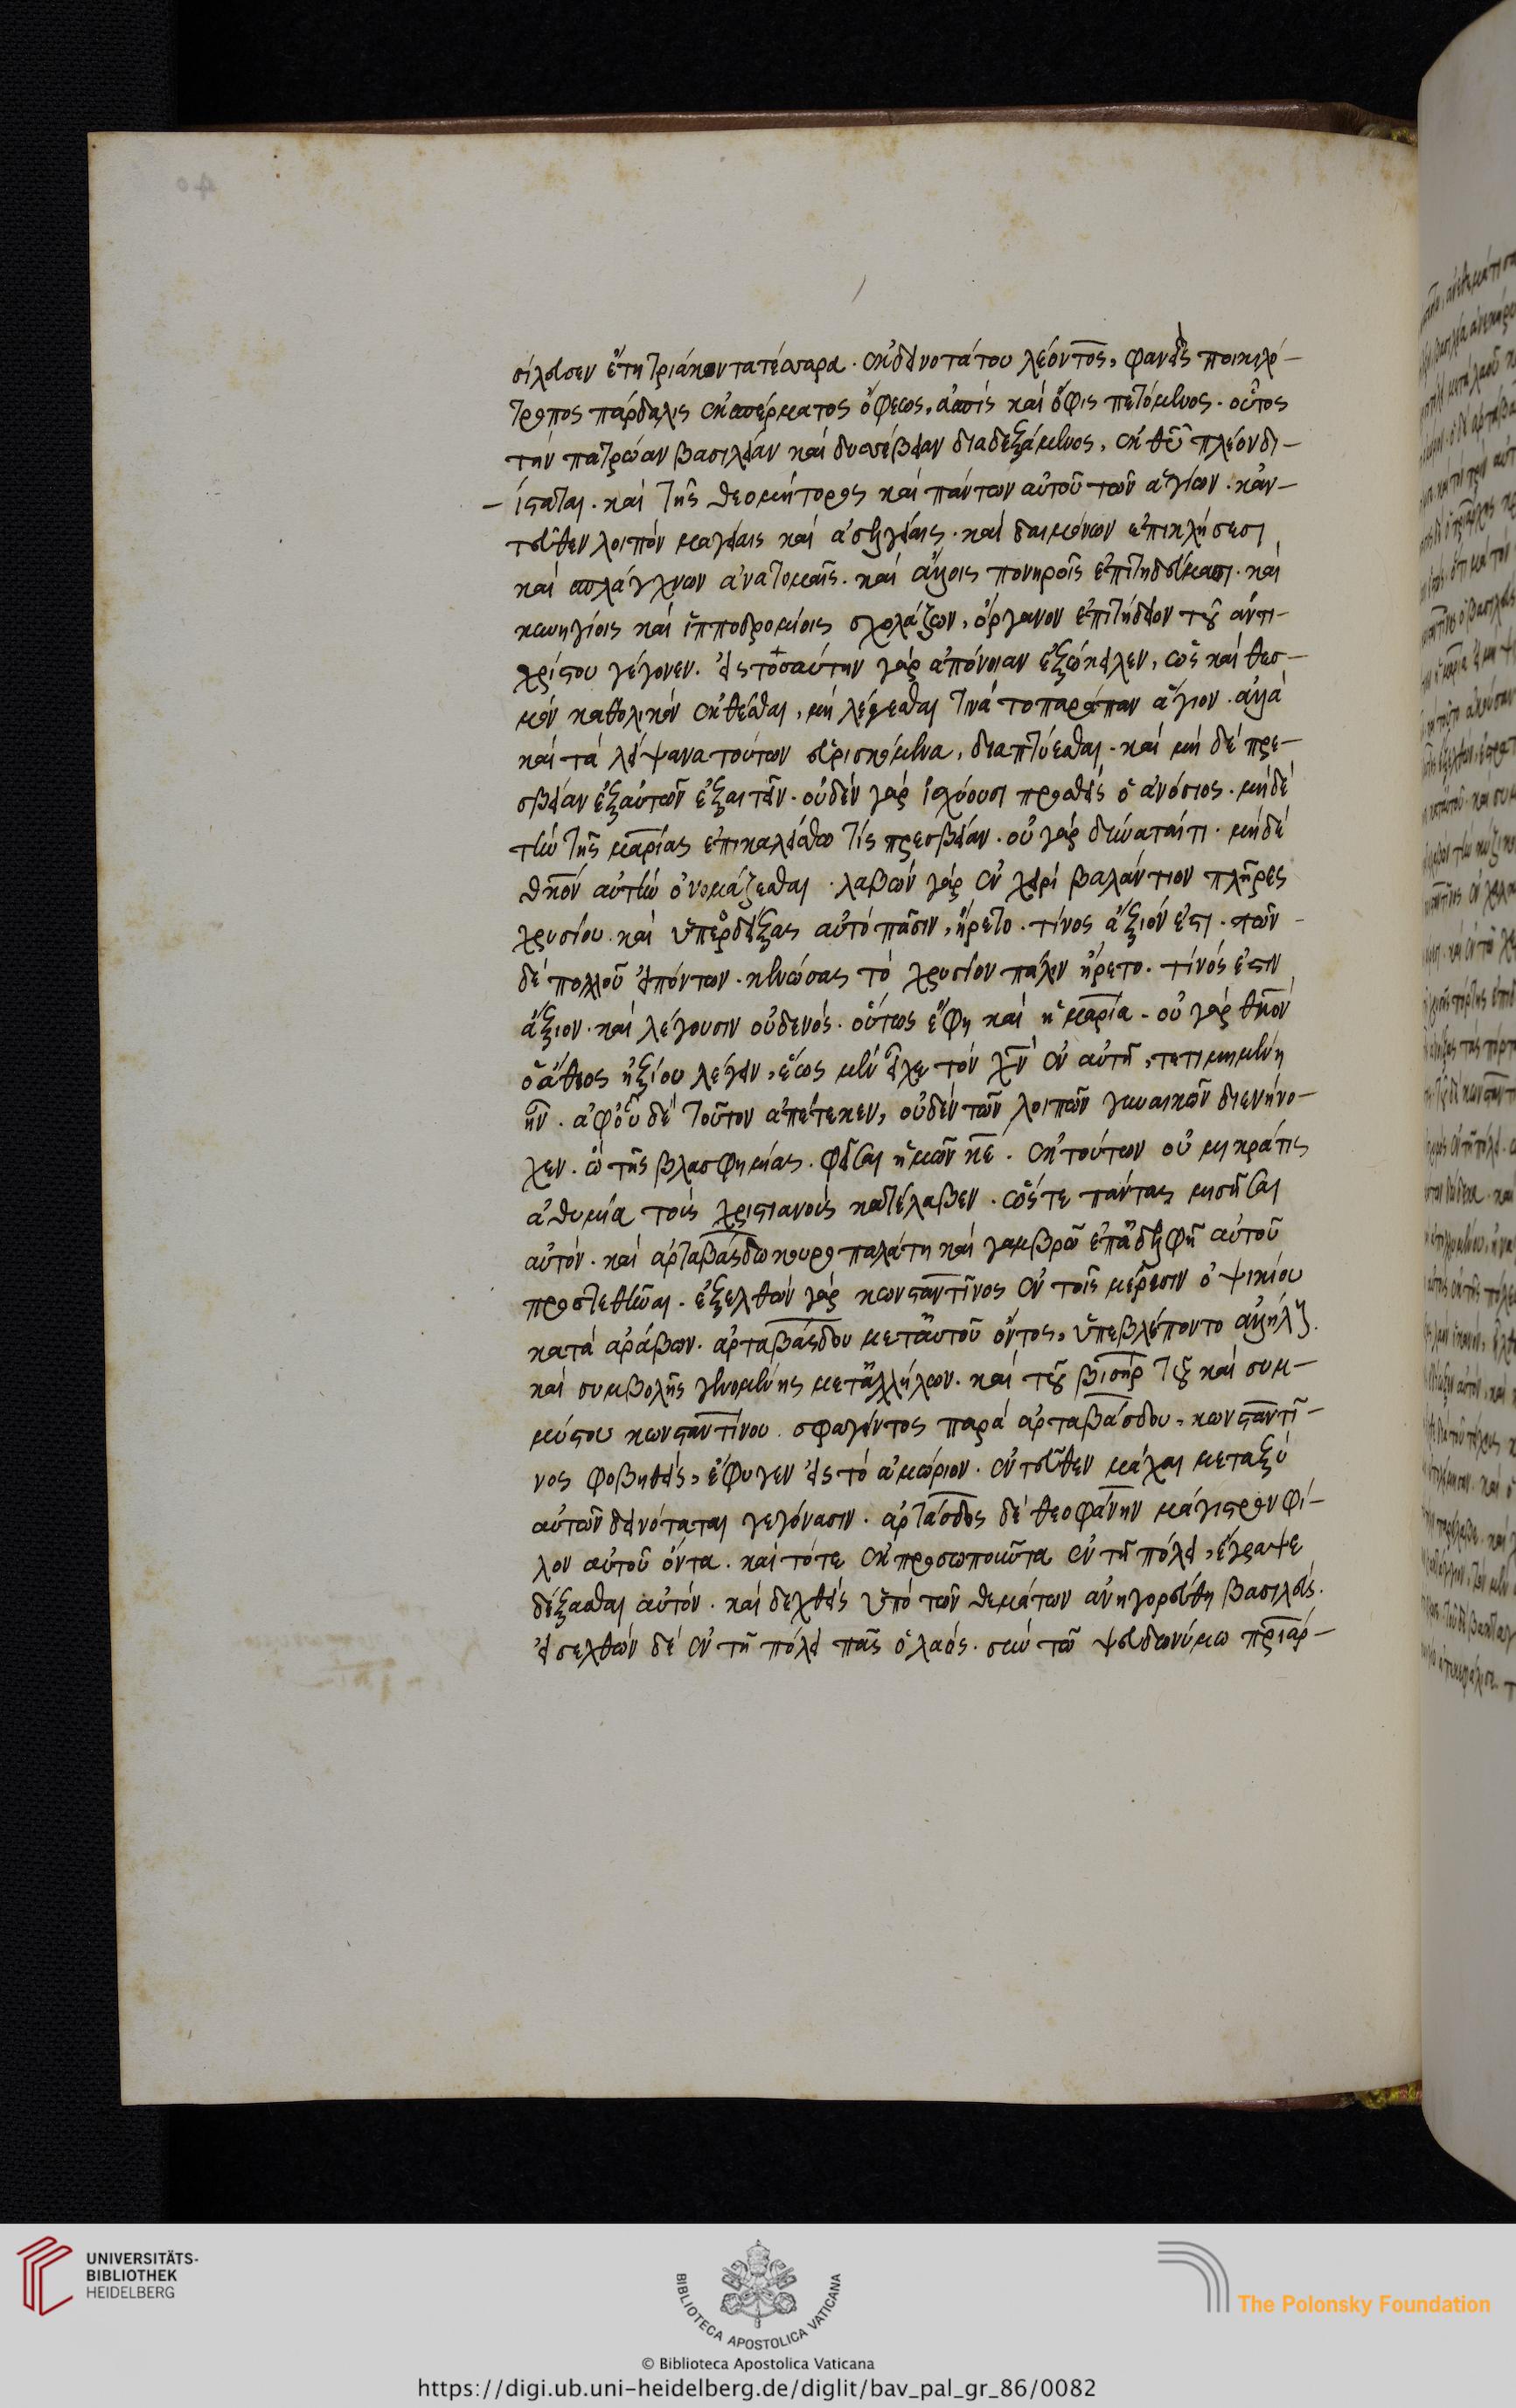 σίλευσεν ἔτη τριάκοντατέσσαρα. ἐκ δεινοτάτου λέοντος, φανεὶς ποικιλό-
τροπος πάρδαλις ἐκ σπέρματος ὄφεως, ἀσπὶς καὶ ὄφις πετόμενος. οὗτος
τὴν πατρώαν βασιλείαν καὶ δυσσέβειαν διαδεξάμενος, ἐκ θῦ πλέον δι-
ίσταται. καὶ τῆς θεομήτορος καὶ πάντων αὐτοῦ τῶν ἁγίων. κἀν-
τεῦθεν λοιπὸν μαγείαις καὶ ἀσελγείαις. καὶ δαιμόνων ἐπικλήσεσι
καὶ σπλάγχνων ἀνατομαῖς. καὶ ἄλλοις πονηροῖς ἐπιτηδεύμασι. καὶ
κυνηγίοις καὶ ἱπποδρομίοις σχολάζων, ὄργανον ἐπιτήδειον τοῦ ἀντι-
χρίστου γέγονεν. εἰς τοσαύτην γὰρ ἀπόνοιαν ἐξώκειλεν, ὡς καὶ θεσ-
μὸν καθολικὸν ἐκθέσθαι, μὴ λέγεσθαι τινὰ τοπαράπαν ἅγιον. ἀλλὰ
καὶ τὰ λείψανα τούτων εὑρισκόμενα, διαπτύεσθαι. καὶ μὴ δὲ πρε-
σβείαν ἐξαυτῶν ἐξαιτεῖν. οὐδὲν γὰρ ἰσχύουσι προσθεὶς ὁ ἀνόσιος. μὴδὲ
τὴν τῆς μαρίας ἐπικαλείσθω τίς πρεσβείαν. οὐ γὰρ δύναταίτι. μὴδὲ
θκον αὐτὴν ὀνομάζεσθαι. λαβὼν γὰρ ἐν χειρὶ βαλάντιον πλῆρες
χρυσίου. καὶ ὑπερδείξας αὐτὸ πᾶσιν, ἤρετο. τίνος ἄξιόν ἐστι. τῶν
δὲ πολλοῦ εἰπόντων. κενώσας τὸ χρυσίον πάλιν ἤρετο. τίνός ἐστιν
ἄξιον. καὶ λέγουσιν οὐδενός. οὕτως ἔφη καὶ ἡ μαρία. οὐ γὰρ θκον
ὁ ἄθεος ἠξίου λέγειν, ἕως μὲν εἶχε τὸν χν ἐν αὐτῇ, τετιμημένη
ἦν. ἀφοὗ δὲ τοῦτον ἀπέτεκεν, οὐδὲν τῶν λοιπῶν γυναικῶν διενήνο-
χεν. ὢ τῆς βλασφημίας. φεῖσαι ἡμῶν κε. ἐκ τούτων οὐ μικράτις
ἀθυμία τοὺς χριστιανοὺς κατέλαβεν. ὥστε πάντας μισῆσαι
αὐτόν. καὶ ἀρταβάσδω κουροπαλάτη καὶ γαμβρῶ ἐπἀδελφῆ αὐτοῦ
προστεθῆναι. ἐξελθὼν γὰρ κωνσταντῖνος ἐν τοῖς μέρεσιν ὀψικίου
κατὰ ἀράβων. ἀρταβάσδου μετ᾽αὐτοῦ ὄντος, ὑπεβλέποντο ἀλλήλοις.
καὶ συμβολῆς γενομένης μετ᾽ἀλλήλων. καὶ τοῦ βισὴρ τοῦ καὶ συμ-
μύστου κωνσταντίνου. σφαγέντος παρὰ ἀρταβάσδου, κωνσταντῖ-
νος φοβηθεὶς, ἔφυγεν εἰς τὸ ἀμώριον. ἐντεῦθεν μάχαι μεταξὺ
αὐτῶν δεινόταται γεγόνασιν. ἀρτάσδος δὲ θεοφάνην μάγιστρον φί-
λον αὐτοῦ ὄντα. καὶ τότε ἐκ προσωποῦντα ἐν τῆ πόλει, ἔγραψε
δέξασθαι αὐτόν. καὶ δεχθεὶς ὑπὸ τῶν θεμάτων ἀνηγορεύθη βασιλεύς.
εἰσελθὼν δὲ ἐν τῆ πόλει πᾶς ὁ λαός. σὺν τῶ ψευδωνύμω πριάρ-
UNIVERSITÄTS-
BIBLIOTHEK
HEIDELBERG
BIBLIOTECA APOSTOLICA VATICANA
The Polonsky Foundation
© Biblioteca Apostolica Vaticana
https://digi.ub.uni-heidelberg.de/diglit/bav_pal_gr_86/0082